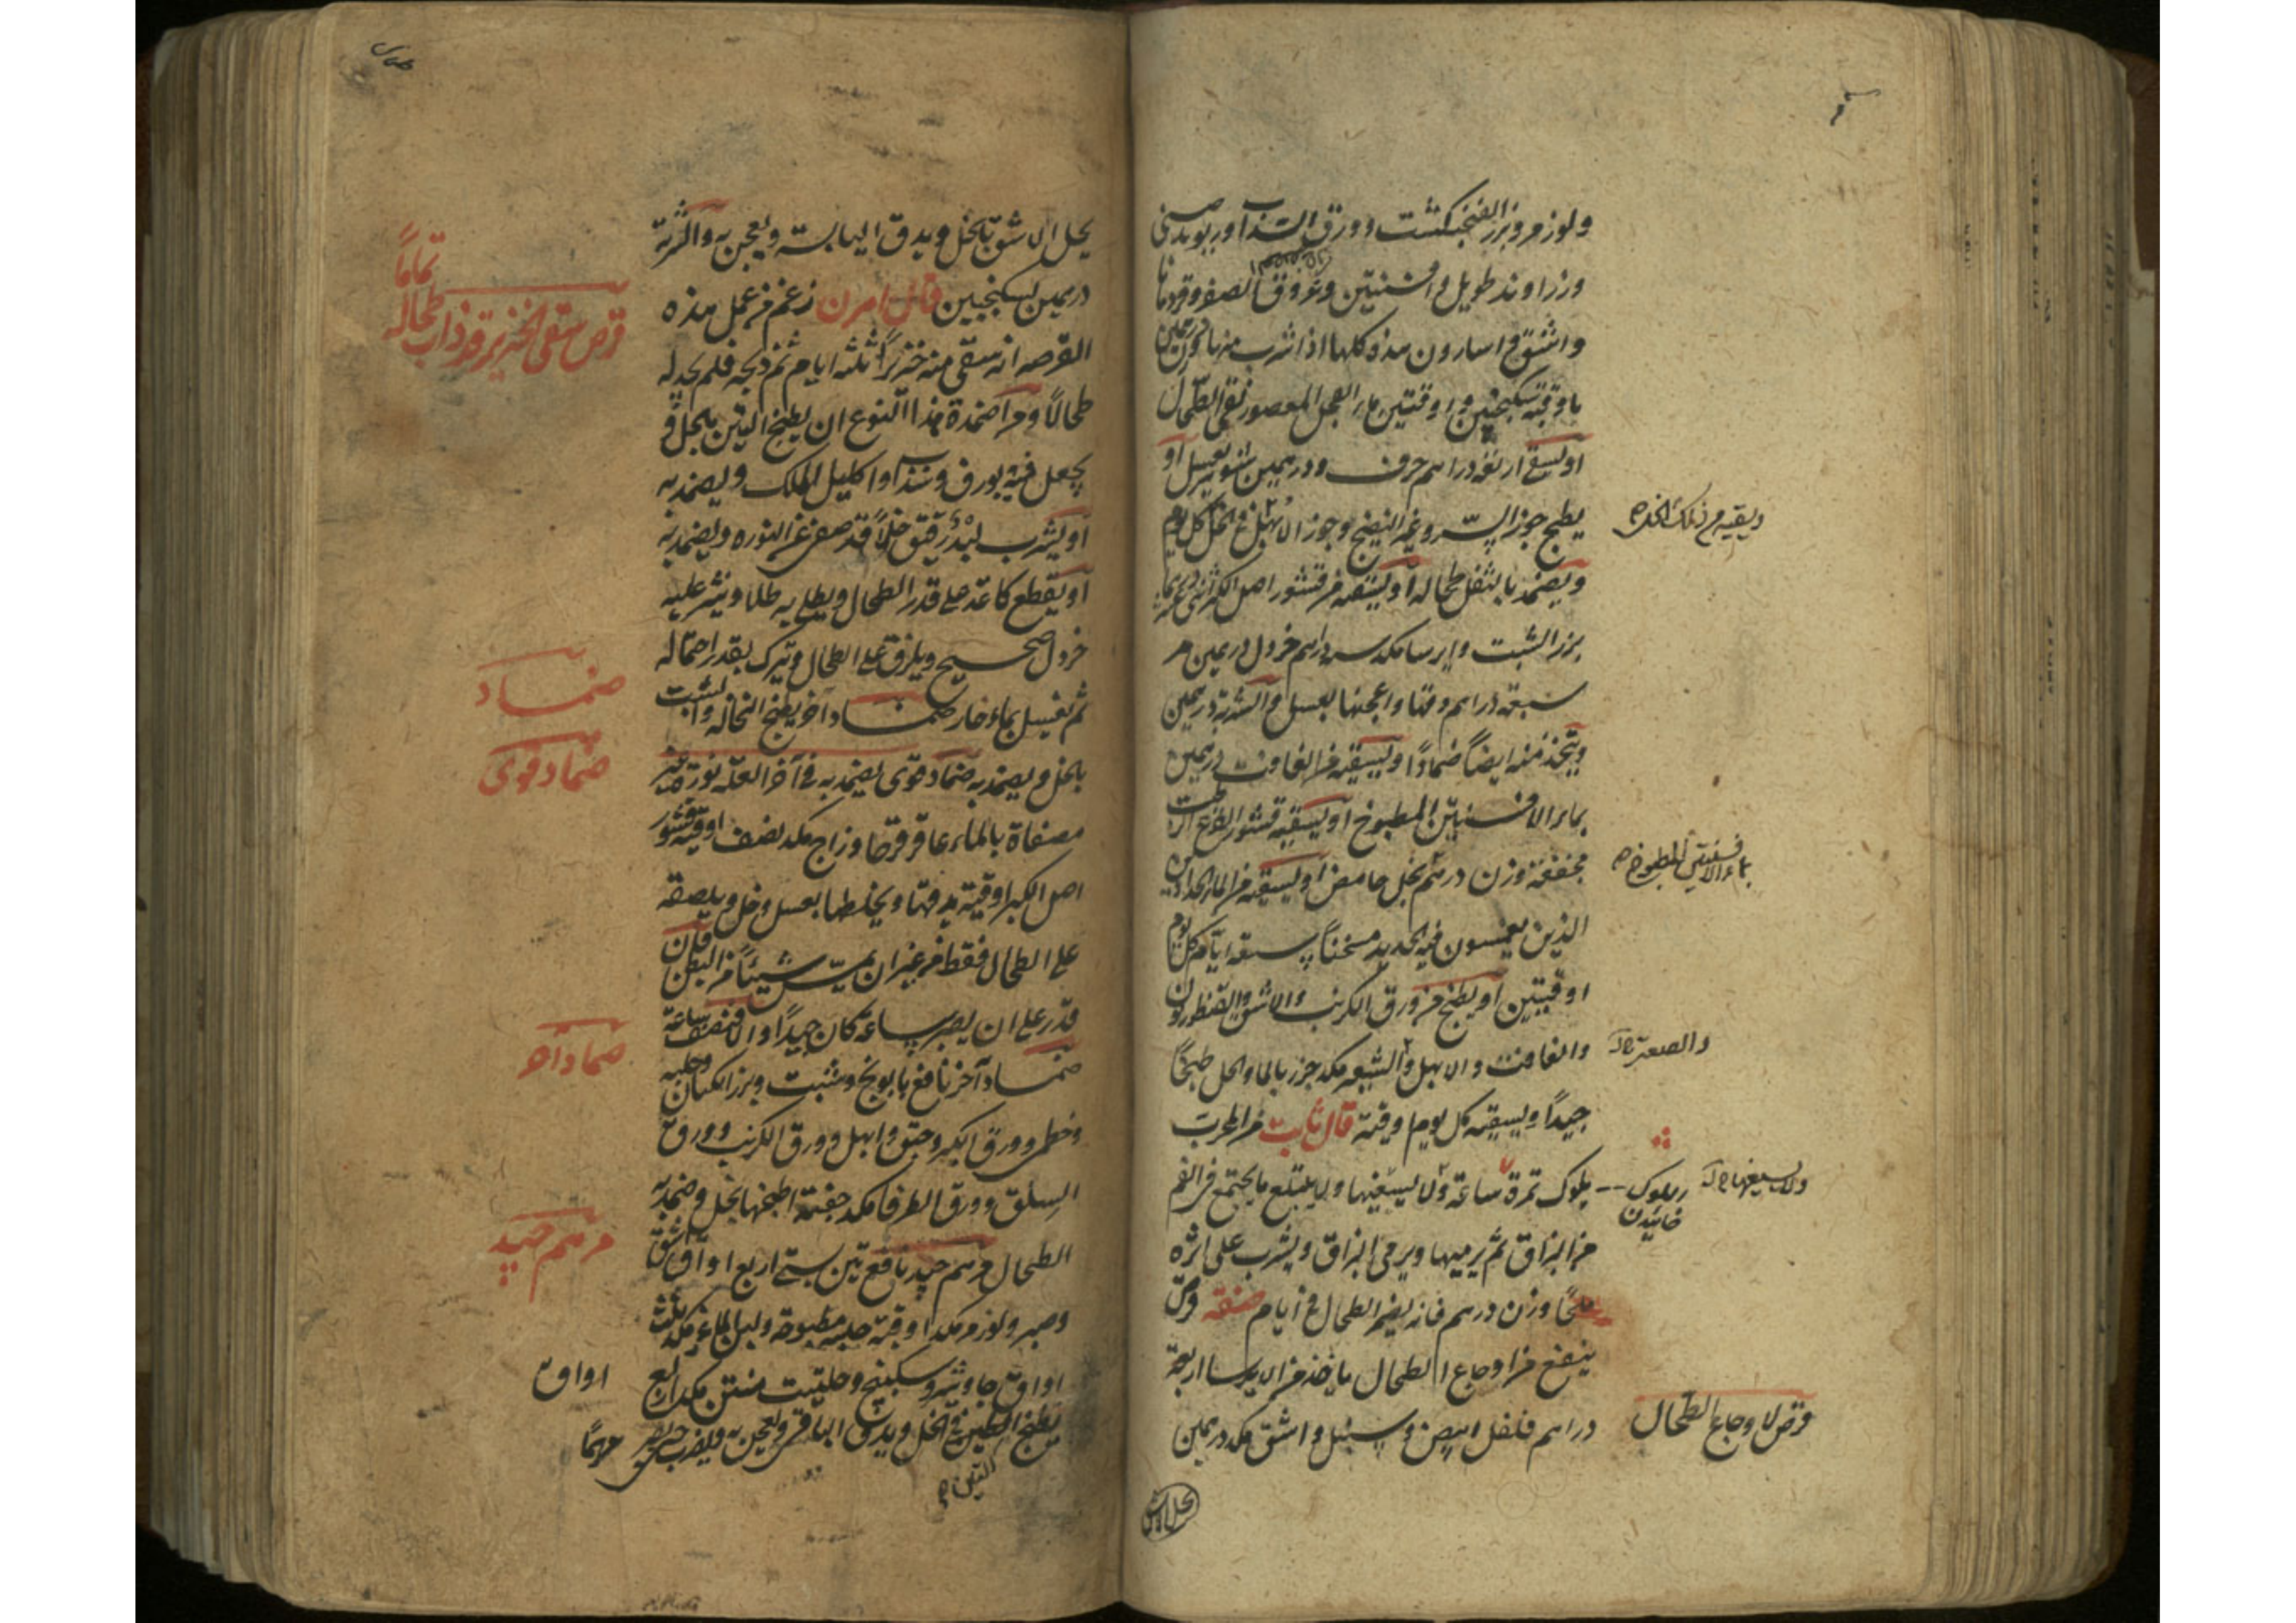 ولوز مر وبزر الفنجنكشت وورق السذاب وريوند صينى
وزراوند طويل وافسنتين وعروق الصفر وقردمانا
واشق واسارون هذه كلها اذا شرب منها درهمين
باوقية سكنجبين واوقيتين ماء الفجل المعصور نقى الطحال
او يسقى اربعة دراهم حرف ودرهمين شونيز بعسل او
يطبخ جوز السرو غير النضيج وجوز الابهل فى الخل كل يوم
ويضمد بالثفل طحاله او يسقيه من قشور اصل الكبر
بزر الشبت وايرسا مكد سه دراهم خردل درهمين مر
سبعة دراهم دقها واعجنها بعسل والشربة درهمين
ويتخذ منه ايضاً ضماداً او يسقيه من الغافت درهمين
بماء الافسنتين المطبوخ او يسقيه قشور القرع
مجففة وزن درهم بخل حامض او يسقيه من الماء الحدادين
الذين يغمسون فيه الحديد مسخناً سبعة ايام كل يوم
اوقيتين او يطبخ من ورق الكرنب والاشق والقنطوريون
والغافت والابهل والشيح مكد جزء بالماء والخل طبخاً
جيداً ويسقيه كل يوم اوقية قال ثابت من المجرب
يلوك تمرة ساعة ولا يسيغها ولا يبتلع ما يجتمع فى الفم
من البزاق ثم يرميها ويرمى البزاق ويشرب على اثره
ملحاً وزن درهم فانه يضمر الطحال فى ايام صفة قرص
ينفع من اوجاع الطحال ياخذ من الايرسا اربعة
دراهم فلفل ابيض وسنبل واشق مكد درهمين
بماء الافسنتين المطبوخ
والصعتر
ولا يسيغها
يلوك خائيدن
قرص لاوجاع الطحال
يحل الاشق بالخل ويدق اليابسة ويعجن به والشربة
درهمين بسكنجبين قال اهرن زعم من عمل هذه
القرصه انه سقى منه خنزيراً ثلثه ايام ثم ذبحه فلم يجد له
طحالاً ومن اضمدة هذا النوع ان يطبخ التين بالخل و
يجعل فيه بورق وسذاب واكليل الملك ويضمد به
او يشرب لبد رقيق خلاً قد صفى عن النوره ويضمد به
او يقطع كاغد على قدر الطحال ويطلى به طلا وينثر عليه
خردل صحيح ويلزق على الطحال ويترك بقدر احتماله
ثم تغسل بماء حار ضماد آخر يطبخ النخاله والشبت
بالخل ويضمد به ضماد قوى يضمد به فى آخر العله نورة
مصفاة بالماء عاقرقرحا وزاج مكد نصف اوقيه قشور
اصل الكبر اوقية يدقها ويخلطها بعسل وخل ويلصقه
على الطحال فقط من غير ان يمس شيئاً من البطن فان
قدر على ان يصبر ساعة كان جيداً والا فنصف ساعة
ضماد آخر نافع بابونج وشبت وبزر الكتان وحلبه
وخطمى وورق الكبر وحبق وابهل وورق الكرنب وورق
السلق وورق الطرفا مكد حفنة اطبخها بخل وضمد به
الطحال مرهم جيد نافع تين ستى اربع اواق اشق
وصبر ولوز مر مكد اوقية حلبه مطبوخة ولباب الماعز مكد ثلث
اواق جاوشير وسكبينج وحلتيت منتن مكد اربع اواق
يطبخ التين فى الخل ويدق الباقى ويعجن به ويضرب حتى يصير مرهماً
تماماً
قرص سقى الخنزير قد ذاب طحاله
ضماد
ضماد قوى
ضماد آخر
مرهم جيد
التين